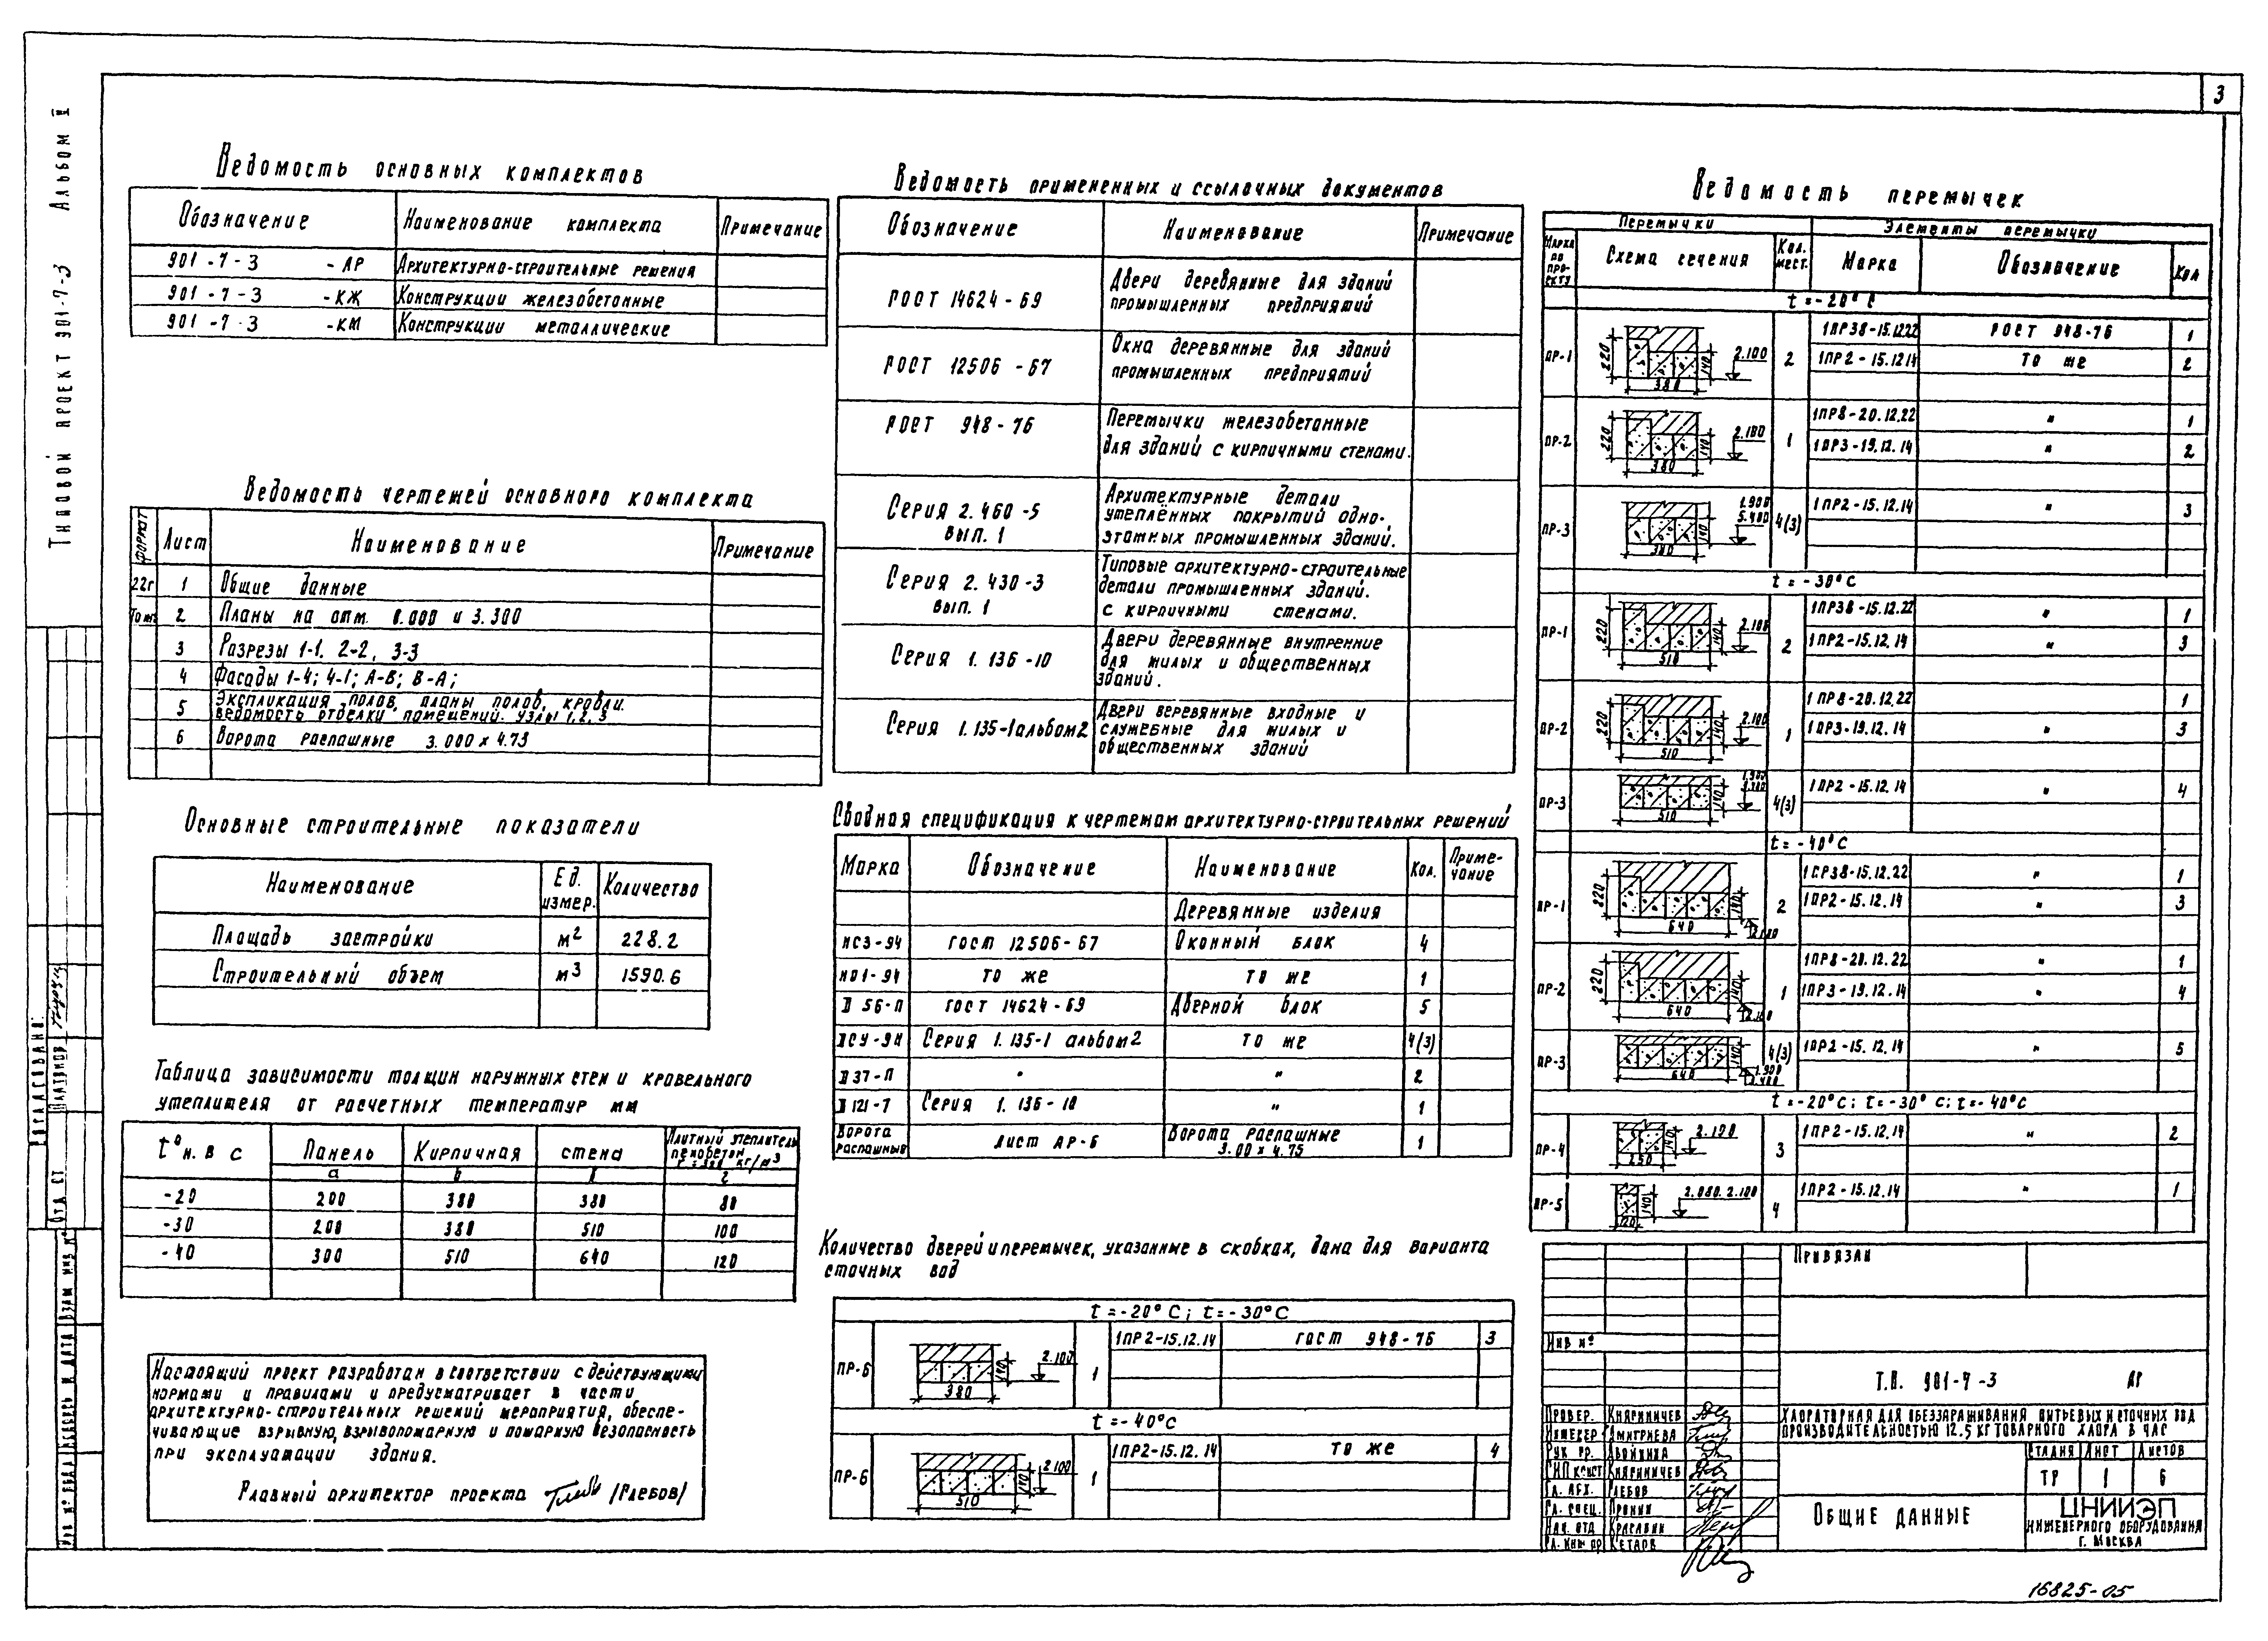 3
Типовой проект 901-7-3 Альбом II
Ведомость основных комплектов
Обозначение Наименование комплекта Примечание
901-7-3 -АР Архитектурно-строительные решения
901-7-3 -КЖ Конструкции железобетонные
901-7-3 -КМ Конструкции металлические
Ведомость чертежей основного комплекта
Формат Лист Наименование Примечание
22г 1 Общие данные
То же 2 Планы на отм. 0.000 и 3.300
3 Разрезы 1-1. 2-2, 3-3
4 Фасады 1-4; 4-1; А-В; В-А;
5 Экспликация полов, планы полов, кровли.
Ведомость отделки помещений. Узлы 1, 2, 3
6 Ворота распашные 3.000 х 4.75
Основные строительные показатели
Наименование Ед. измер. Количество
Площадь застройки м2 228.2
Строительный объем м3 1590.6
Таблица зависимости толщин наружных стен и кровельного
утеплителя от расчетных температур мм
t° н.в С Панель Кирпичная стена Плитный утеплитель
пенобетон
кг/м3
а
-20 200 380 380 80
-30 200 380 510 100
-40 300 510 640 120
Настоящий проект разработан в соответствии с действующими
нормами и правилами и предусматривает в части
архитектурно-строительных решений мероприятия, обеспе-
чивающие взрывную, взрывопожарную и пожарную безопасность
при эксплуатации здания.
Главный архитектор проекта (Глебов)
Ведомость примененных и ссылочных документов
Обозначение Наименование Примечание
ГОСТ 14624-69 Двери деревянные для зданий
промышленных предприятий
ГОСТ 12506-67 Окна деревянные для зданий
промышленных предприятий
ГОСТ 948-76 Перемычки железобетонные
для зданий с кирпичными стенами.
Серия 2.460-5 Архитектурные детали
вып. 1 утеплённых покрытий одно-
этажных промышленных зданий.
Серия 2.430-3 Типовые архитектурно-строительные
вып. 1 детали промышленных зданий.
с кирпичными стенами.
Серия 1.136-10 Двери деревянные внутренние
для жилых и общественных
зданий.
Серия 1.135-1 альбом2 Двери веревянные входные и
служебные для жилых и
общественных зданий
Сводная спецификация к чертежам архитектурно-строительных решений
Марка Обозначение Наименование Кол. Приме-
чание
Деревянные изделия
НС3-94 ГОСТ 12506-67 Оконный блок 4
НО1-94 то же то же 1
Д 56-П ГОСТ 14624-69 Дверной блок 5
Серия 1.135-1 альбом2 то же 4(3)
Д37-П " " 2
Д 121-7 Серия 1.136-10 " 1
Ворота распашные Лист АР-6 Ворота распашные 1
3.00 х 4.75
Количество дверей и перемычек, указанные в скобках, дана для варианта
сточных вод
t = -20° С; t = -30°С
ПР-6 1 1ПР2-15.12.14 ГОСТ 948-76 3
380 140 2.100
t = -40°С
ПР-6 1 1ПР2-15.12.14 то же 4
510 140 2.100
Ведомость перемычек
Перемычки Элементы перемычки
Марка по про-екту Схема сечения Кол. мест. Марка Обозначение Кол
t = -20° С
ПР-1 2 1ПР38-15.12.22 ГОСТ 948-76 1
1ПР2-15.12.14 то же 2
220 380 140 2.100
ПР-2 1 1ПР8-20.12.22 " 1
1ПР3-19.12.14 " 2
220 380 140 2.100
ПР-3 4(3) 1ПР2-15.12.14 " 3
380 140 1.900 5.400
t = -30°С
ПР-1 2 1ПР38-15.12.22 " 1
1ПР2-15.12.14 " 3
220 510 140 2.100
ПР-2 1 1ПР8-20.12.22 1
1ПР3-19.12.14 " 3
220 510 140 2.100
ПР-3 4(3) 1ПР2-15.12.14 " 4
510 140
t = -40°С
ПР-1 2 15.12.22 " 1
1ПР2-15.12.14 " 3
220 640 140
ПР-2 1 1ПР8-20.12.22 " 1
1ПР3-19.12.14 " 4
220 640 140
ПР-3 4(3) 1ПР2-15.12.14 " 5
640 140
t = -20°С; t = -30°С; t = -40°С
ПР-4 3 1ПР2-15.12.14 " 2
250 140 2.100
ПР-5 4 1ПР2-15.12.14 " 1
120 140 2.080. 2.100
Привязан
Инв №
Т.П. 901-7-3 АР
Хлораторная для обеззараживания питьевых и сточных вод
производительностью 12.5 кг товарного хлора в час
Стадия Лист Листов
ТР 1 6
Общие данные
ЦНИИЭП
инженерного оборудования
г. Москва
Провер. Княгиничев
Инженер Дмитриева
Рук. гр. Двойнина
ГИП конст Княгиничев
Гл. арх. Глебов
Гл. спец. Пронин
Нач. отд Красавин
Гл. инж пр Кетаов
Согласовано:
Отд СТ
Взам инв №
Подпись и дата
Инв № подл
16825-05